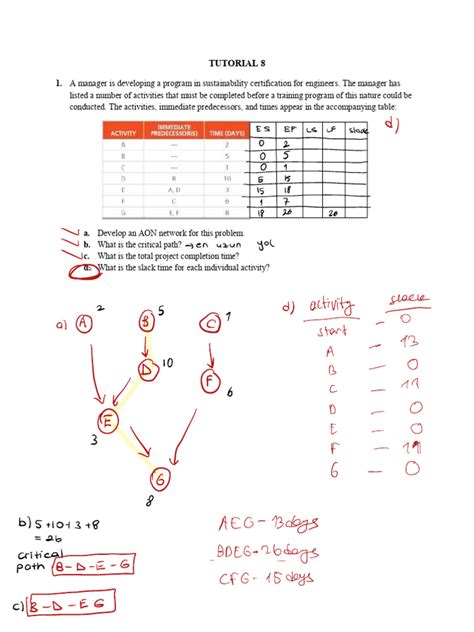 TUTORIAL 8
1. A manager is developing a program in sustainability certification for engineers. The manager has
listed a number of activities that must be completed before a training program of this nature could be
conducted. The activities, immediate predecessors, and times appear in the accompanying table:
d)
ACTIVITY IMMEDIATE PREDECESSOR(S) TIME (DAYS) ES EF LS LF slack
A — 2 0 2
B — 5 0 5
C — 1 0 1
D B 10 5 15
E A, D 3 15 18
F C 6 1 7
G E, F 8 18 26 26
a. Develop an AON network for this problem.
b. What is the critical path? → en uzun yol
c. What is the total project completion time?
d. What is the slack time for each individual activity?
a) A 2 B 5 C 1
D 10
F 6
E 3
G 8
d) activity slack
start — 0
A — 13
B — 0
C — 11
D — 0
E — 0
F — 11
G — 0
b) 5+10+3+8
= 26
critical
path B-D-E-G
c) B-D-E G
AEG - 13 days
BDEG - 26 days
CFG - 15 days